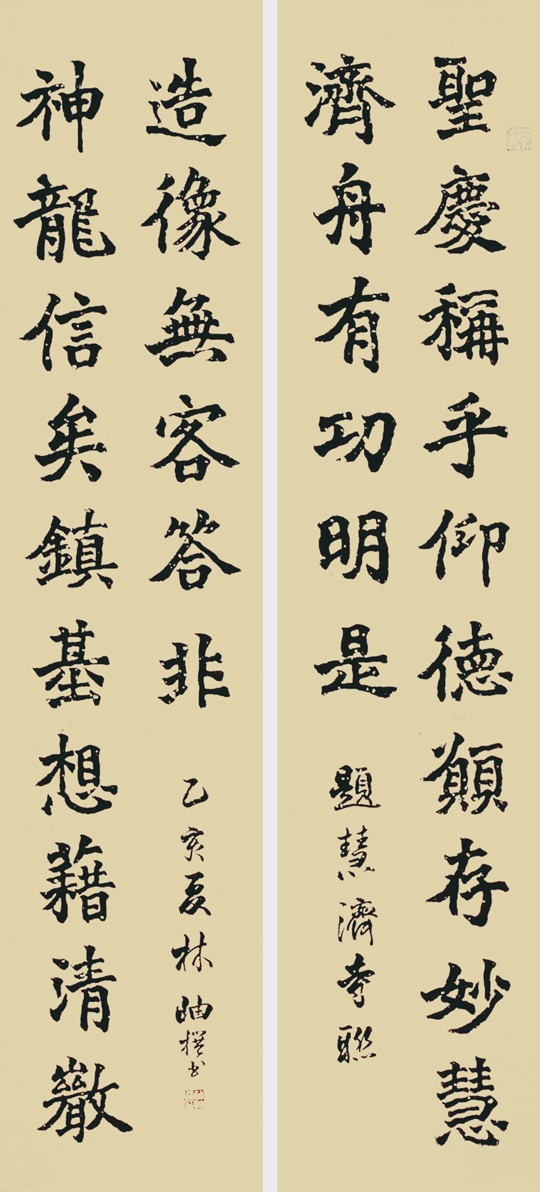 聖慶稱乎仰德願存妙慧
濟舟有功明是
題慧濟寺聯
神龍信矣鎮基想藉清徽
造像無客答非
乙亥夏林岫撰書